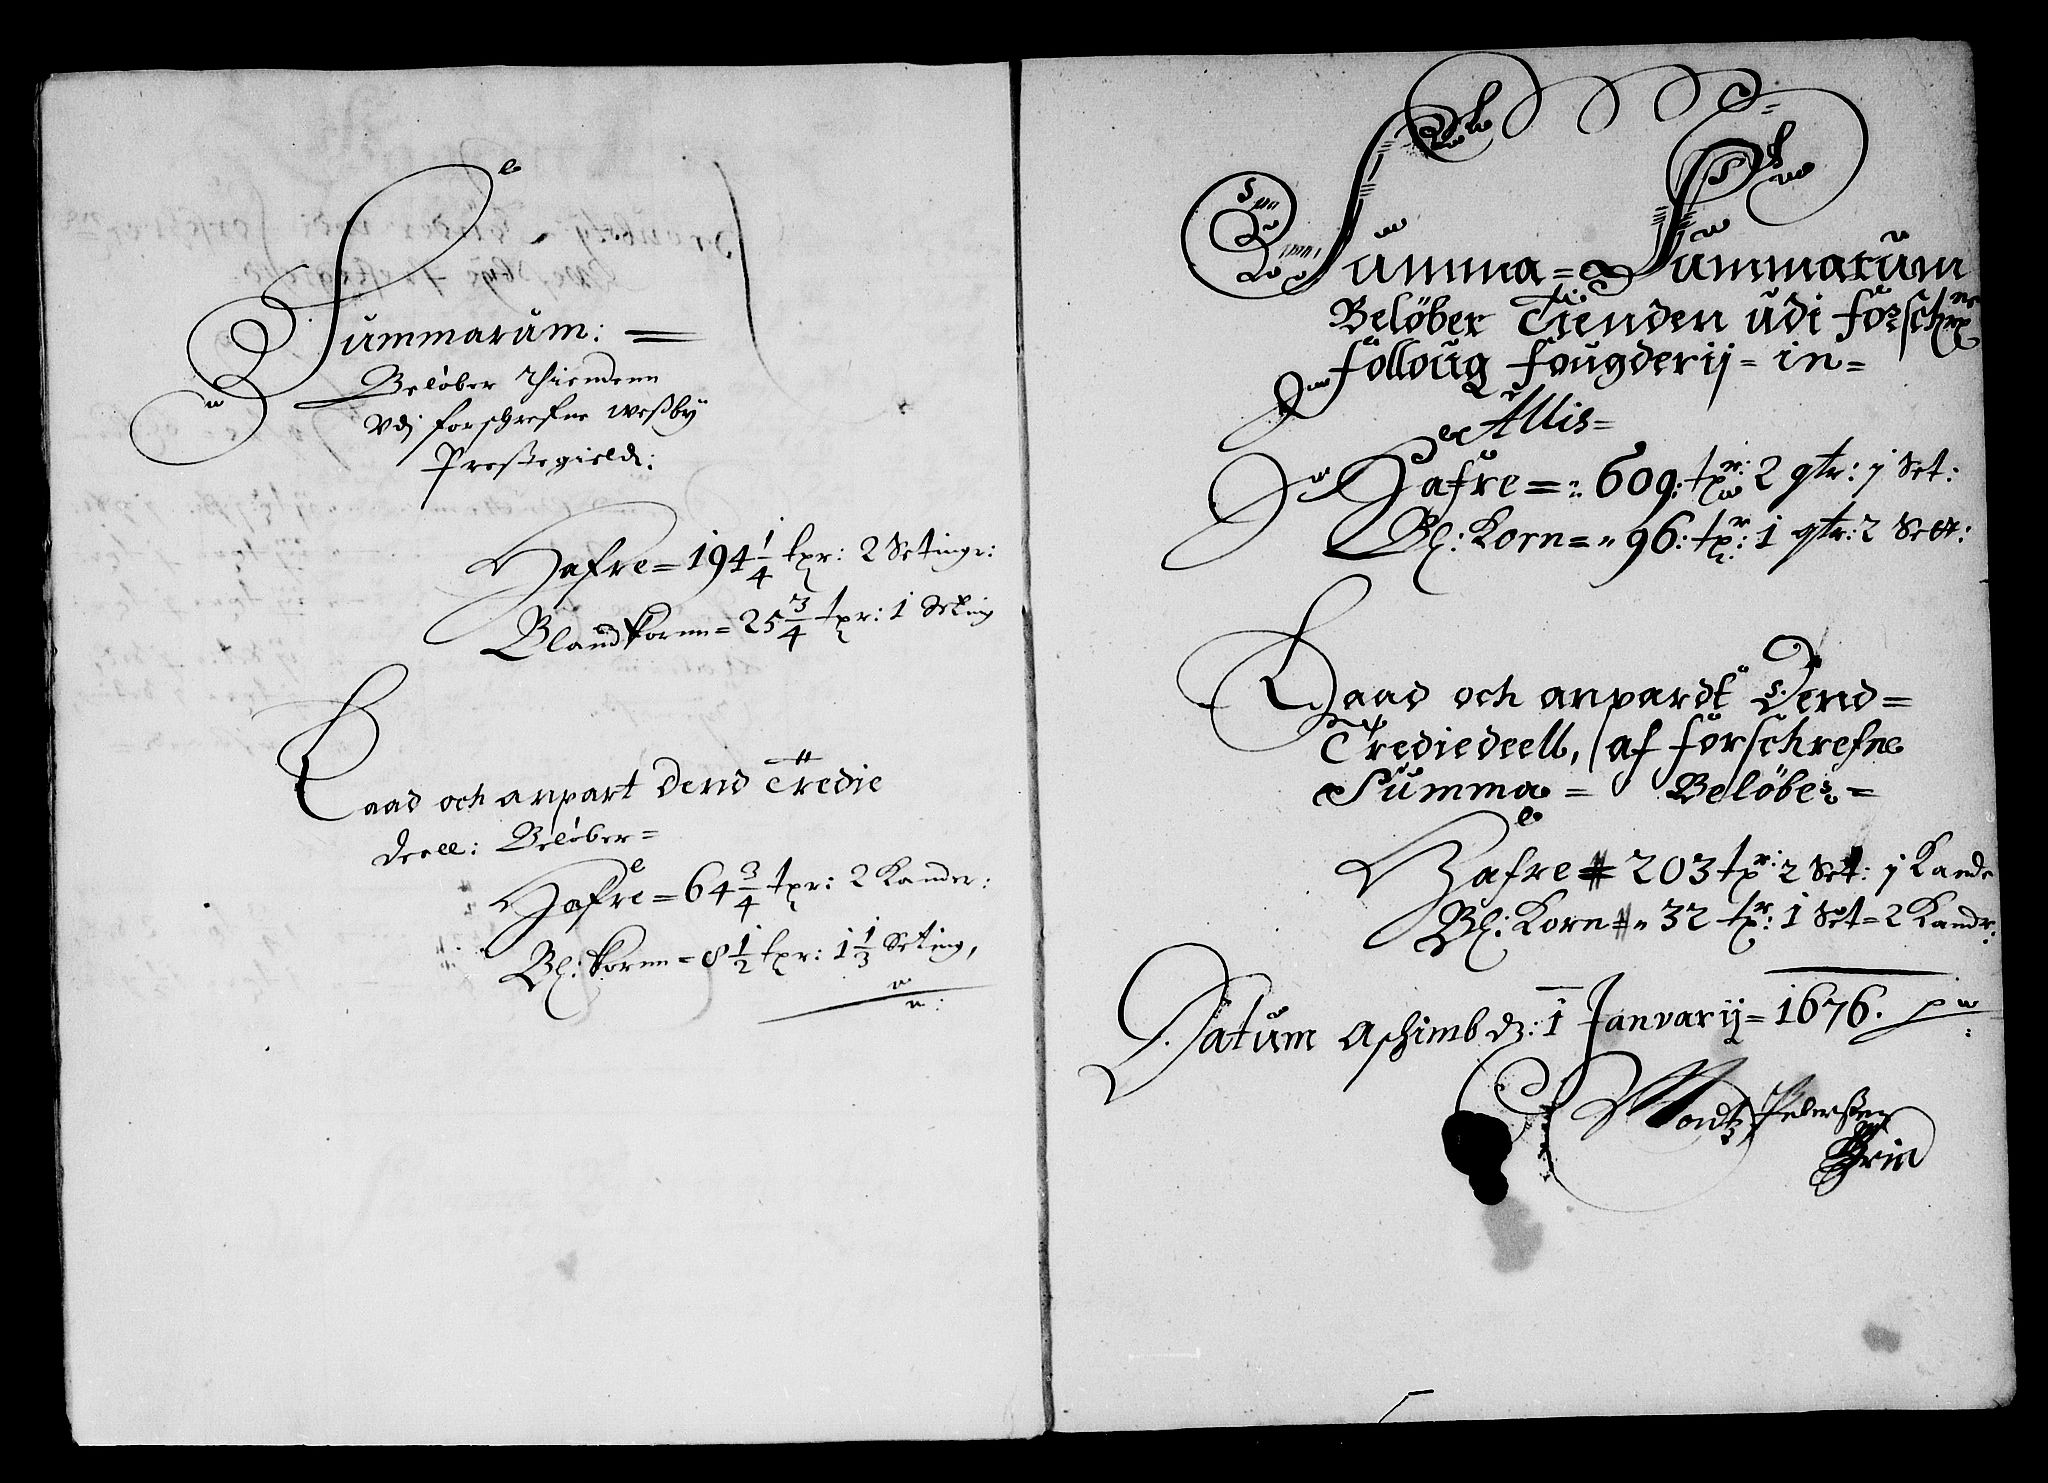 Summarum: =
Beløber Thiendenn
Vdj forschrefne Weßby
Preßtegield:
Hafre = 194 1/4 tpr: 2 Setinge:
Blandkornn = 25 3/4 tpr: 1 Seting
Laad och anpart Dend Tredie
deell: Beløber =
Hafre = 64 3/4 tpr: 2 Kander:
Bl: kornn = 8 1/2 tpr: 1 1/3 Seting,
Summa = Summarum
Beløber Tienden udi forschrne
follоug fougderij = in =
Allis =
Hafre = 609: tpr: 2 qtr: j Set:
Bl: Korn = 96: tpr: 1 qtr: 2 Sett:
Laad och anpardt Dend =
Trediedeell, af forschrefne
Summa = Beløber =
Hafre # 203 tpr: 2 Set: j Kande
Bl: Korn # 32 tpr: 1 Set = 2 Kandr:
Datum Aschimb dz: 1 Januarij = 1676.
Pederßen